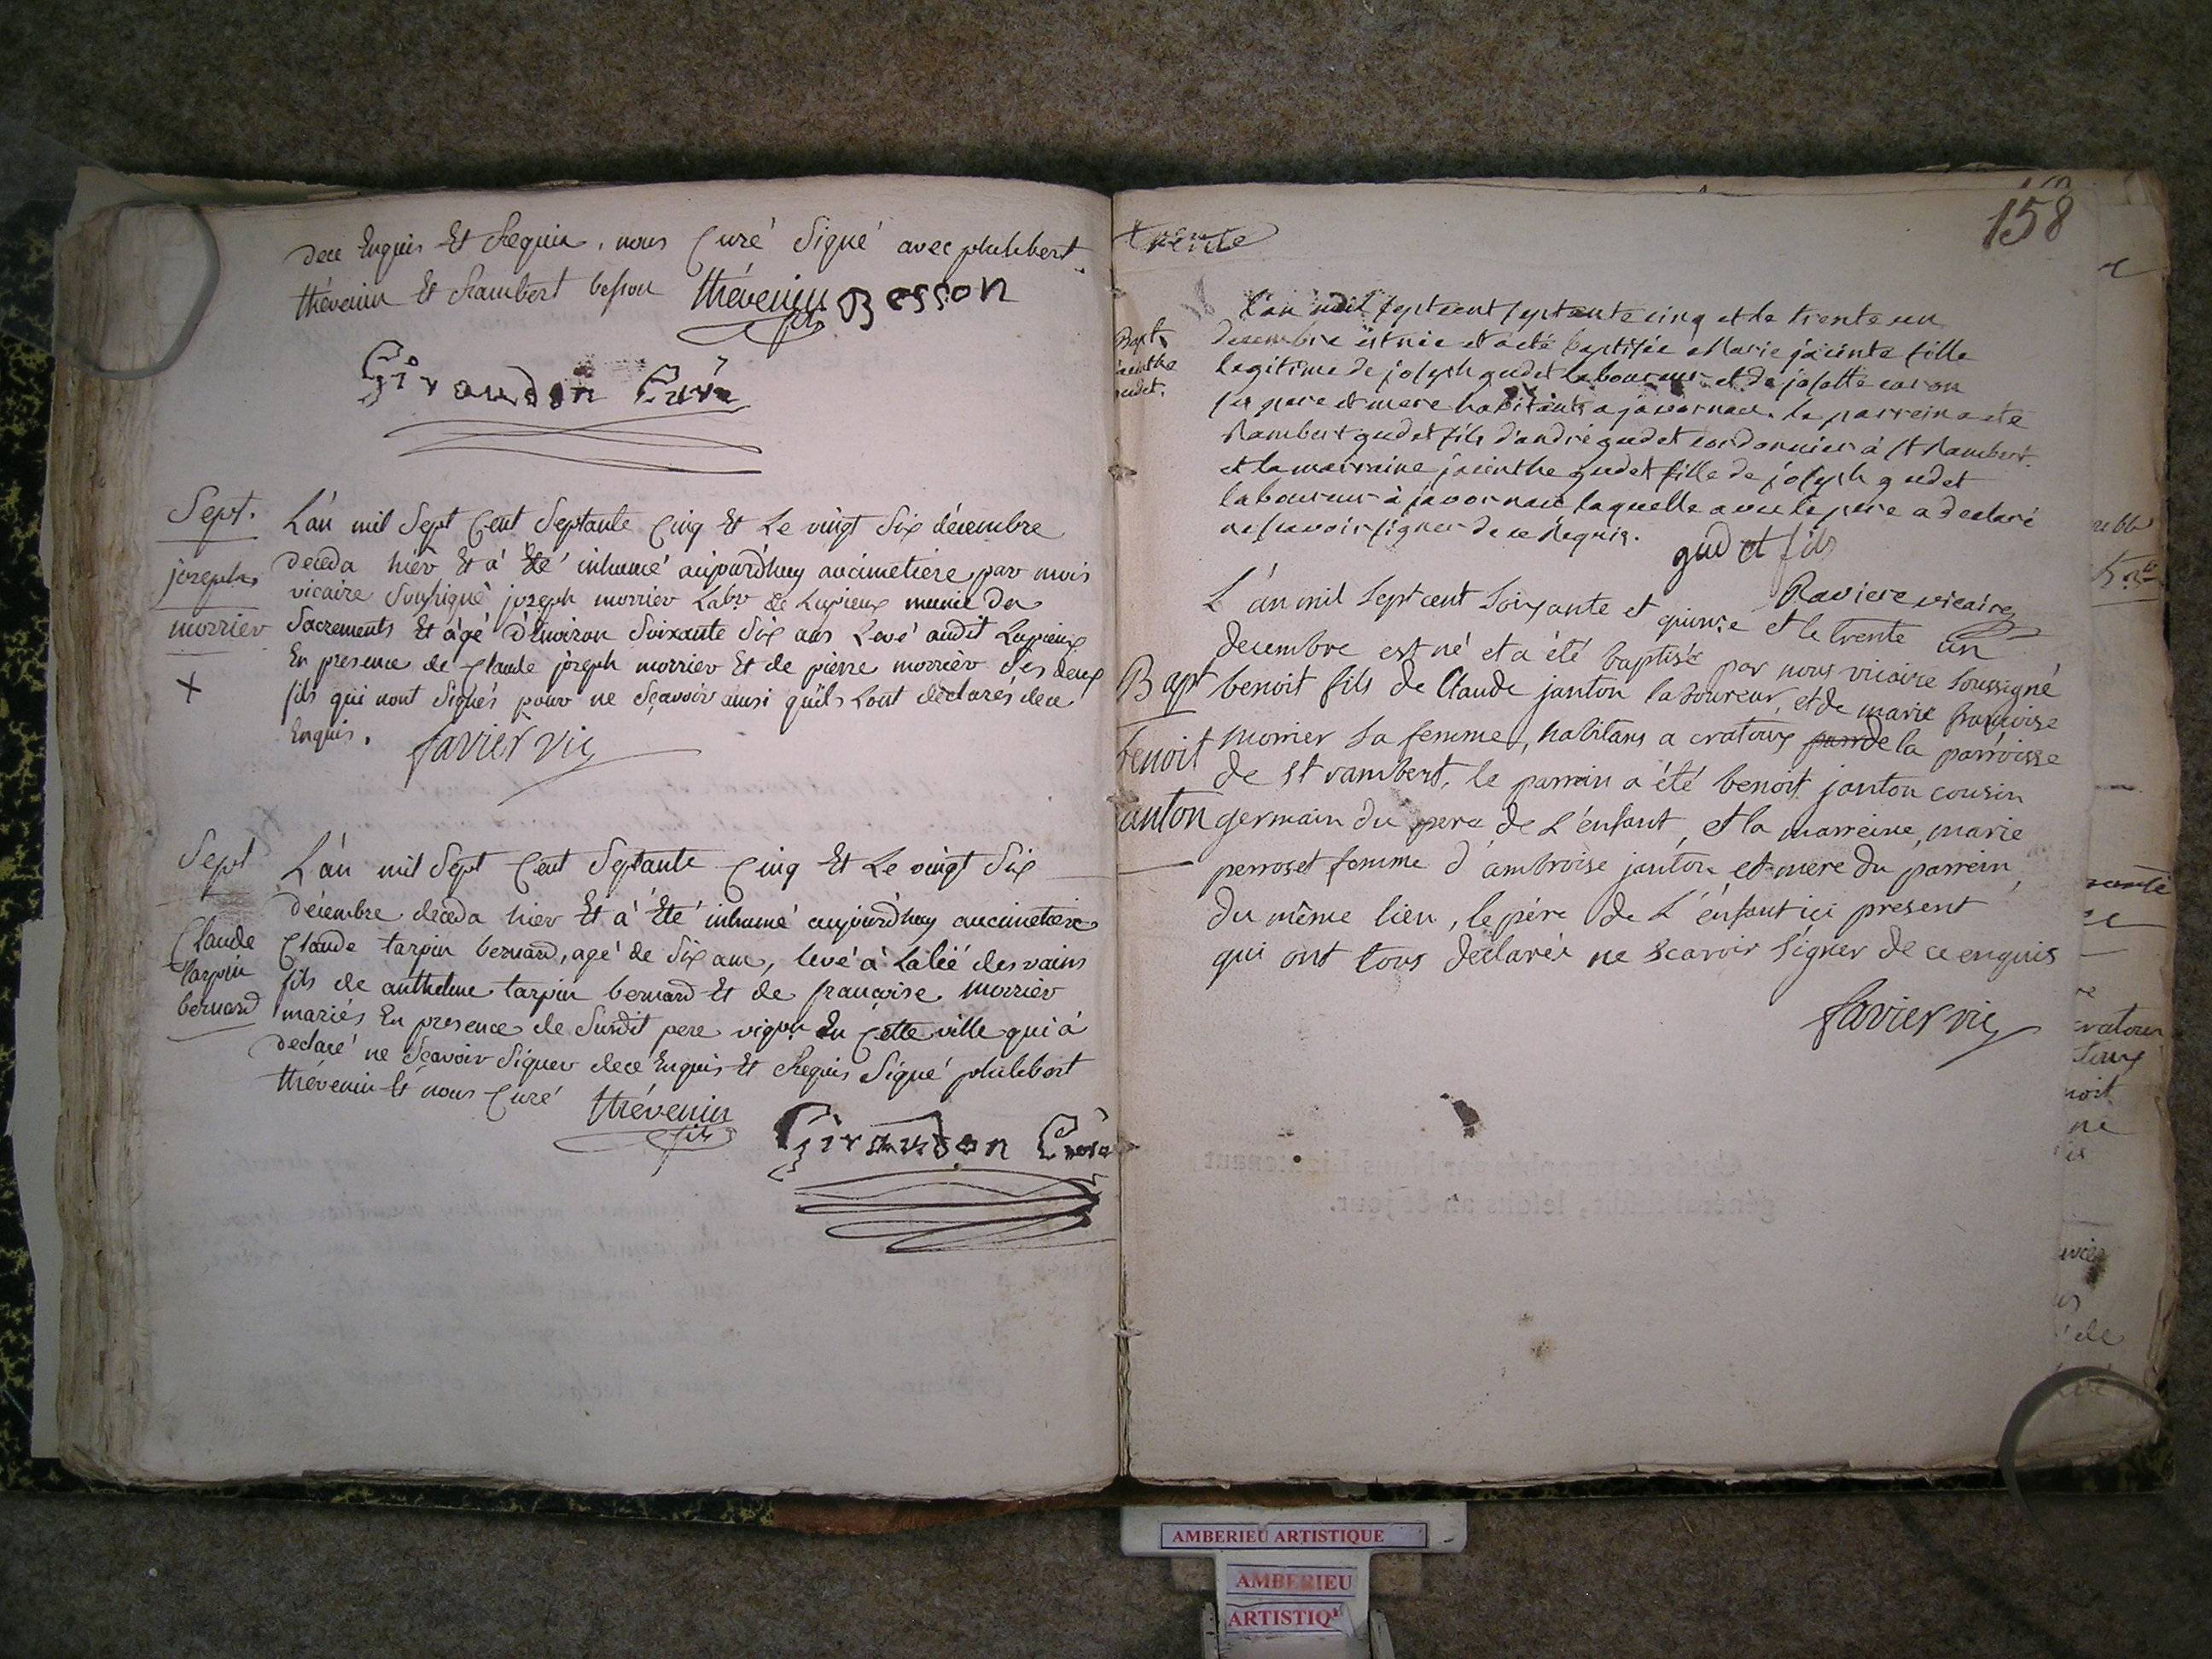 dece Enquis Et Requis, nous Curé Signé avec philibert
thévenin Et Rambert besson thévenin fils Besson
Giraudon Curé
Sept.
joseph
morrier
L'an mil Sept Cent Septante Cinq Et Le vingt Six décembre
deceda hier Et à Eté inhumé aujourd'huy aucimetiere par nous
vicaire Soussigné joseph morrier Labr de Lupieux munie des
Sacrements Et agé d'Environ Soixante Six ans Levé audit Lupieux
En presence de Claude joseph morrier Et de pierre morrier Ses deux
fils qui nont Signés pour ne Sçavoir ainsi quils Lont déclarés dece
Enquis. favier vic
Sept
Claude
tarpin
bernard
L'an mil Sept Cent Septante Cinq Et Le vingt Six
décembre deceda hier Et à Eté inhumé aujourd'huy aucimetiere
Claude tarpin bernard, agé de Six ans, levé à des vains
fils de anthelme tarpin bernard Et de françoise morrier
mariés En presence de Surdit pere vigon En Cette ville qui à
declaré ne Sçavoir Signer dece Enquis Et Requis Signé philibert
thévenin Et nous Curé thévenin fils Giraudon Curé
158
trente
Bapt.
jacinthe
gudet.
L'an mil sept cent septante cinq et le trente un
decembre est née et a eté baptisée Marie jacinte fille
legitime de joseph gudet laboureur et de josette caron
ses pere et mere habitants a javornaux. le parrein a eté
Rambert gudet fils d'andré gudet cordonnier à St Rambert.
et la marraine jacinthe gudet fille de joseph gudet
laboureur à javornaux laquelle avec le pere a declaré
ne scavoir signer de ce Requis. gudet fils
Raviere vicaire
Bapt
benoit
janton
L'an mil Sept cent Soixante et quinze et le trente un
decembre est né et a été baptisé par nous vicaire Soussigné
benoit fils de Claude janton laboureur, et de marie françoise
morrier Sa femme, habitans a cratoux de la parroisse
de St rambert, le parrain a été benoit janton cousin
germain du pere de L'enfant, et la marreine, marie
perroset femme d'ambroise janton et mere du parrein,
du même lieu, le père de L'enfant ici present
qui ont tous declarés ne scavoir signer de ce enquis
favier vic
AMBERIEU ARTISTIQUE
AMBERIEU
ARTISTIQ